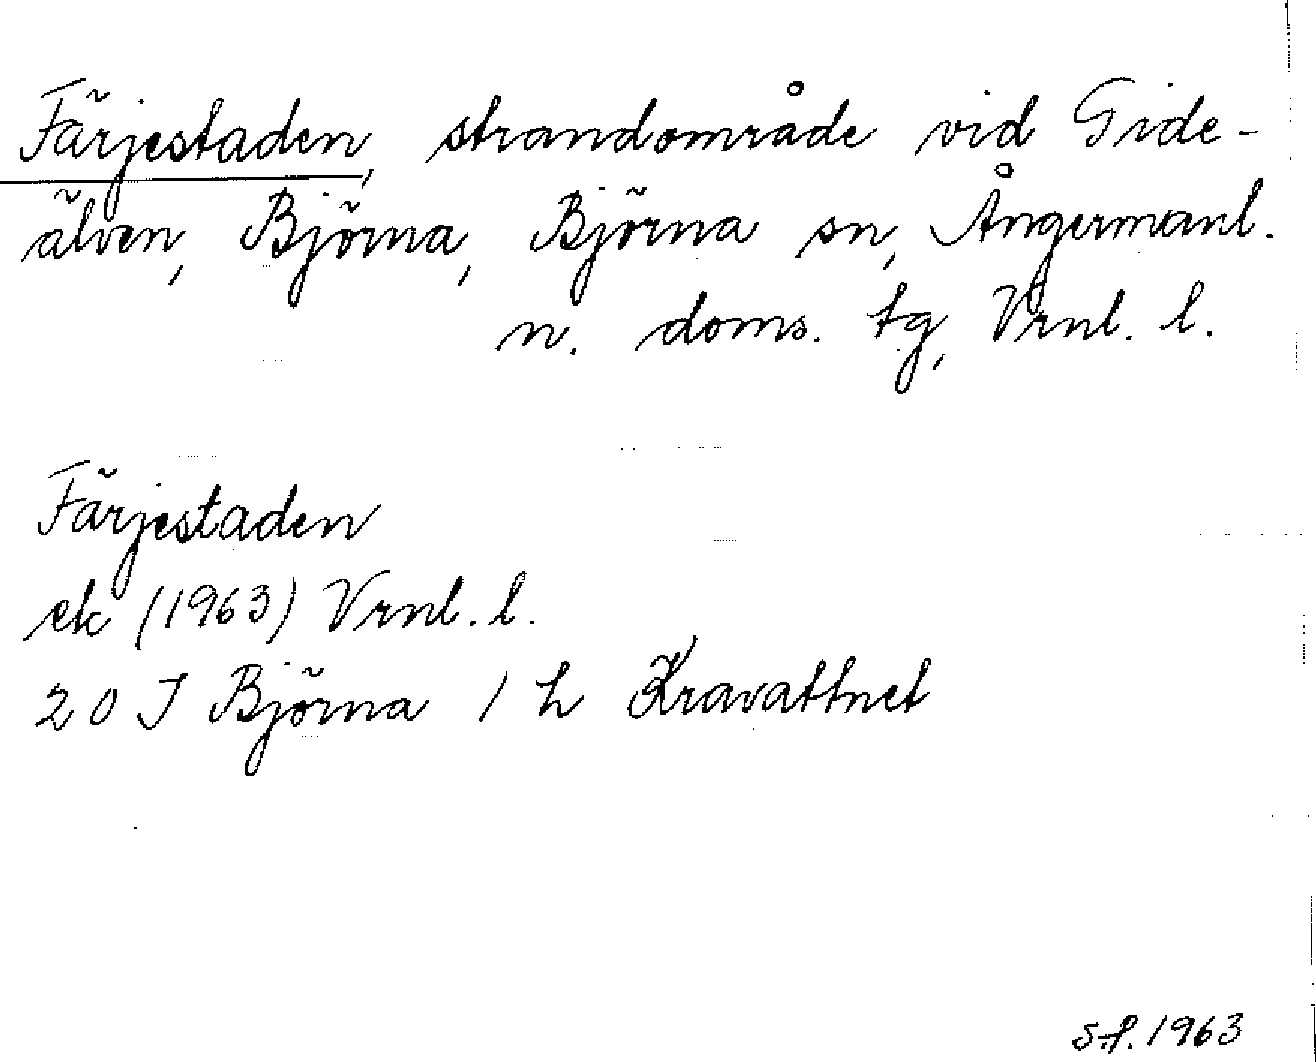 Färjestaden, strandområde vid Gide-
älven, Björna, Björna sn, Ångermanl.
n. doms. tg, Vrnl. l.
Färjestaden
ek (1963) Vrnl. l.
20 J Björna 1 h Kravattnet
S.f. 1963